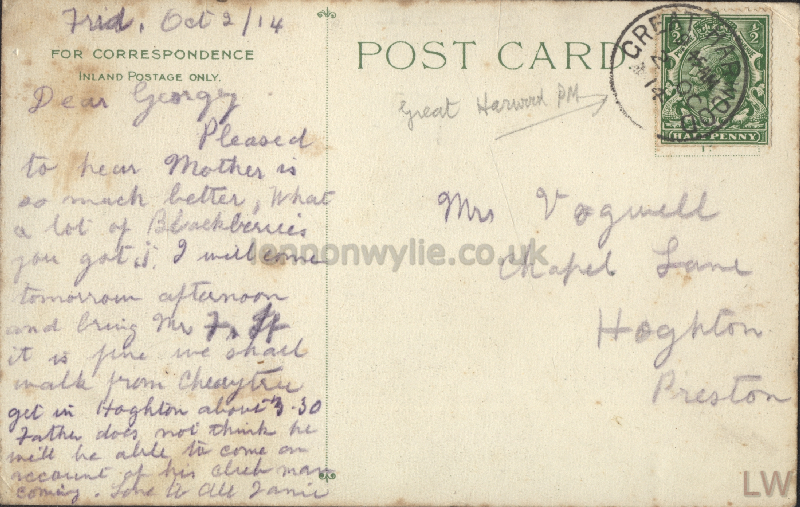 Frid, Oct 2/14
FOR CORRESPONDENCE
INLAND POSTAGE ONLY.
Dear Georgey
Pleased
to hear Mother is
so much better, What
a lot of Blackberries
you got. I will come
tomorrow afternoon
and bring Mr F. If
it is fine we shall
walk from Cherrytree
get in Hoghton about 3.30
Father does not think he
will be able to come on
account of his club man
coming. Love to All Janie
POST CARD
Great Harwood PM
GREAT HARWOOD
OC 2
14
HALFPENNY
Mrs Vogwell
Chapel Lane
Hoghton
Preston
lennonwylie.co.uk
LW